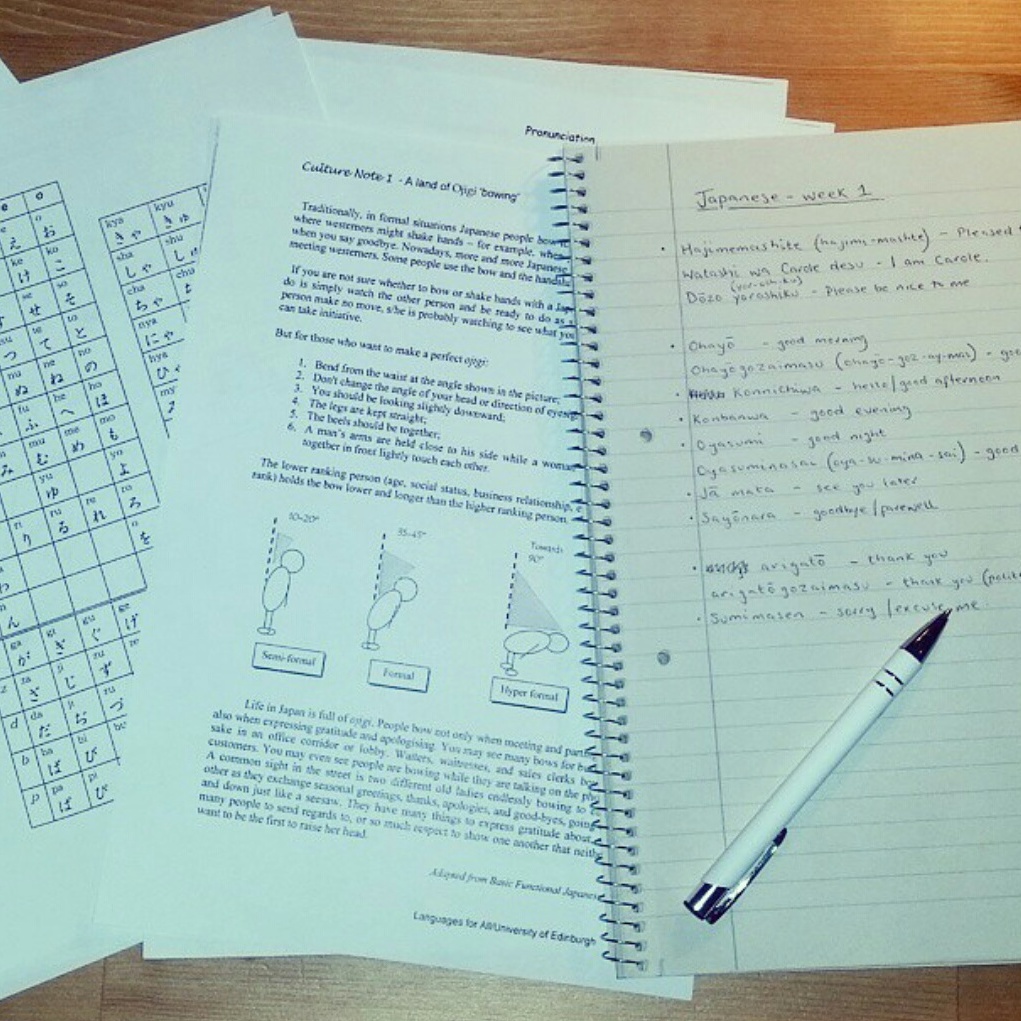 e
o
え
お
ke
ko
け
こ
se
so
せ
そ
te
to
つ
て
と
nu
ne
no
ぬ
ね
の
he
ho
ふ
へ
ほ
mu
me
mo
み
む
め
も
yu
yo
ゆ
よ
ri
ru
re
ro
り
る
れ
ろ
を
ん
ga
gi
gu
ge
が
ぎ
ぐ
げ
z
za
ji
zu
ざ
じ
ず
d
da
ji
zu
だ
ぢ
づ
b
ba
bi
ば
び
p
pa
pi
ぱ
ぴ
kya
kyu
きゃ
きゅ
sha
shu
しゃ
cha
chu
ちゃ
nya
にゃ
hya
ひゃ
Pronunciation
Culture Note 1 - A land of Ojigi 'bowing'
Traditionally, in formal situations Japanese people bow
where westerners might shake hands – for example, when
when you say goodbye. Nowadays, more and more Japanese
meeting westerners. Some people use the bow and the
If you are not sure whether to bow or shake hands with a
do is simply watch the other person and be ready to do as
person make no move, s/he is probably watching to see what you
can take initiative.
But for those who want to make a perfect ojigi:
1. Bend from the waist at the angle shown in the picture;
2. Don't change the angle of your head or direction of
3. You should be looking slightly downward;
4. The legs are kept straight;
5. The heels should be together;
6. A man's arms are held close to his side while a
together in front lightly touch each other.
The lower ranking person (age, social status, business relationship,
rank) holds the bow lower and longer than the higher ranking person.
10-20°
35-45°
Towards
90°
Semi-formal
Formal
Hyper formal
Life in Japan is full of ojigi. People bow not only when meeting and
also when expressing gratitude and apologising. You may see many bows for
sake in an office corridor or lobby. Waiters, waitresses, and sales clerks
customers. You may even see people are bowing while they are talking on the
A common sight in the street is two different old ladies endlessly bowing to
other as they exchange seasonal greetings, thanks, apologies, and good-byes, going
and down just like a seesaw. They have many things to express gratitude about,
many people to send regards to, or so much respect to show one another that
want to be the first to raise her head.
Adapted from Basic Functional Japanese
Languages for All/University of Edinburgh
Japanese - week 1
Hajimemashite (hajimi-mashte) - Pleased
Watashi wa Carole desu - I am Carole.
Dōzo yoroshiku - Please be nice to me
Ohayō - good morning
Ohayōgozaimasu (ohayō-goz-ay-mas) -
Konnichiwa - hello/good afternoon
Konbanwa - good evening
Oyasumi - good night
Oyasuminasai (oya-su-mina-sai) - good
Jā mata - see you later
Sayōnara - goodbye/farewell
arigatō - thank you
arigatōgozaimasu - thank you
Sumimasen - sorry /excuse me